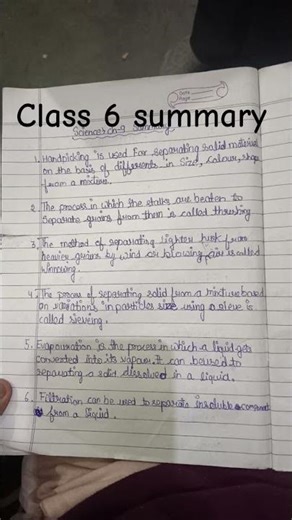 Date
Page
Class 6 summary
Science ch-9 Summary
1. Handpicking is used for separating solid material
on the basis of differents in size, colour, shape
from a mixture.
2. The process in which the stalks are beaten to
separate grains from them is called threshing
3. The method of separating lighter husk from
heavier grains by wind or blowing air is called
winnowing.
4. The process of separating solid from a mixture based
on variations in particles size using a sieve is
called sieving.
5. Evapouration is the process in which a liquid gets
converted into its vapour. It can be used to
separating a solid dissolved in a liquid.
6. Filtration can be used to separate insoluble
from a liquid.